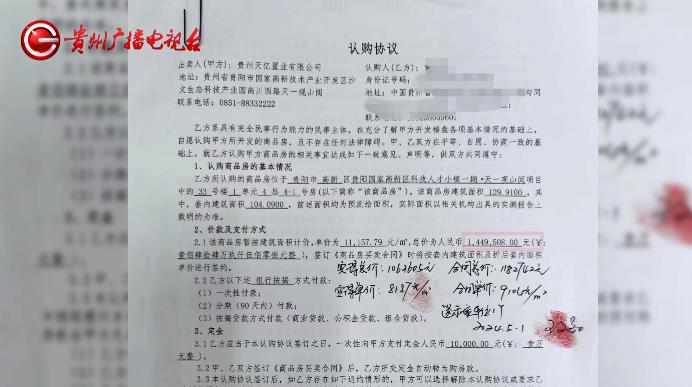 贵州广播电视台
认购协议
出卖人(甲方): 贵州天亿置业有限公司
认购人(乙方):
地址: 贵州省贵阳市国家高新技术产业开发区沙
身份证号码:
文生态科技产业园高川西路天一观山阅
地址: 中国贵州省 与同
联系电话: 0851-88332222
乙方系具有完全民事行为能力的民事主体, 在充分了解甲方开发楼盘各项基本情况的基础上,
自愿认购甲方所开发的商品房, 且不存在任何法律障碍。甲、乙双方在平等、自愿、协商一致的基
础上, 就乙方认购甲方商品房的相关事宜达成如下一致意见、声明等, 供双方共同遵守:
1、认购商品房的基本情况
乙方所认购的商品房位于 贵阳市 高新 区 贵阳国家高新区科技人才小镇一期·天一观山阅 项目
中的 33 号楼 1 单元 4 层 4-1 号房(以下简称“该商品房”), 该商品房建筑面积 129.9100, 其
中, 套内建筑面积 104.0900, 前述面积均为预测绘面积, 实际面积以相关机构出具的实测报告上
载明的为准。
2、价款及支付方式
2.1 该商品房暂按建筑面积计价, 单价为 11,157.79 元/㎡, 总价为人民币 1,449,508.00 元(¥:
壹佰肆拾肆万玖仟伍佰零捌元整), 签订《商品房买卖合同》时将按套内建筑面积及折后套内面积
单价进行签约。
实得总价: 1063605元 合同总价:
2.2 乙方以下述 银行按揭 方式付款:
实得单价: 8187元/㎡ 合同单价: 9106元/㎡
(1)一次性付款;
(2)分期(90 天内)付款;
2024.5.1
(3)按揭贷款方式付款(商业贷款、公积金贷款、组合贷款)。
3、定金
3.1 乙方应当于本认购协议签订之日, 一次性向甲方支付定金人民币 10,000.00 元(¥: 壹万
元整)。
3.2 甲、乙双方签订《商品房买卖合同》后, 乙方所交定金自动转为购房款。
3.3 本认购协议签订后, 如乙方存在如下违约情形的, 甲方可以选择解除本认购协议或要求乙